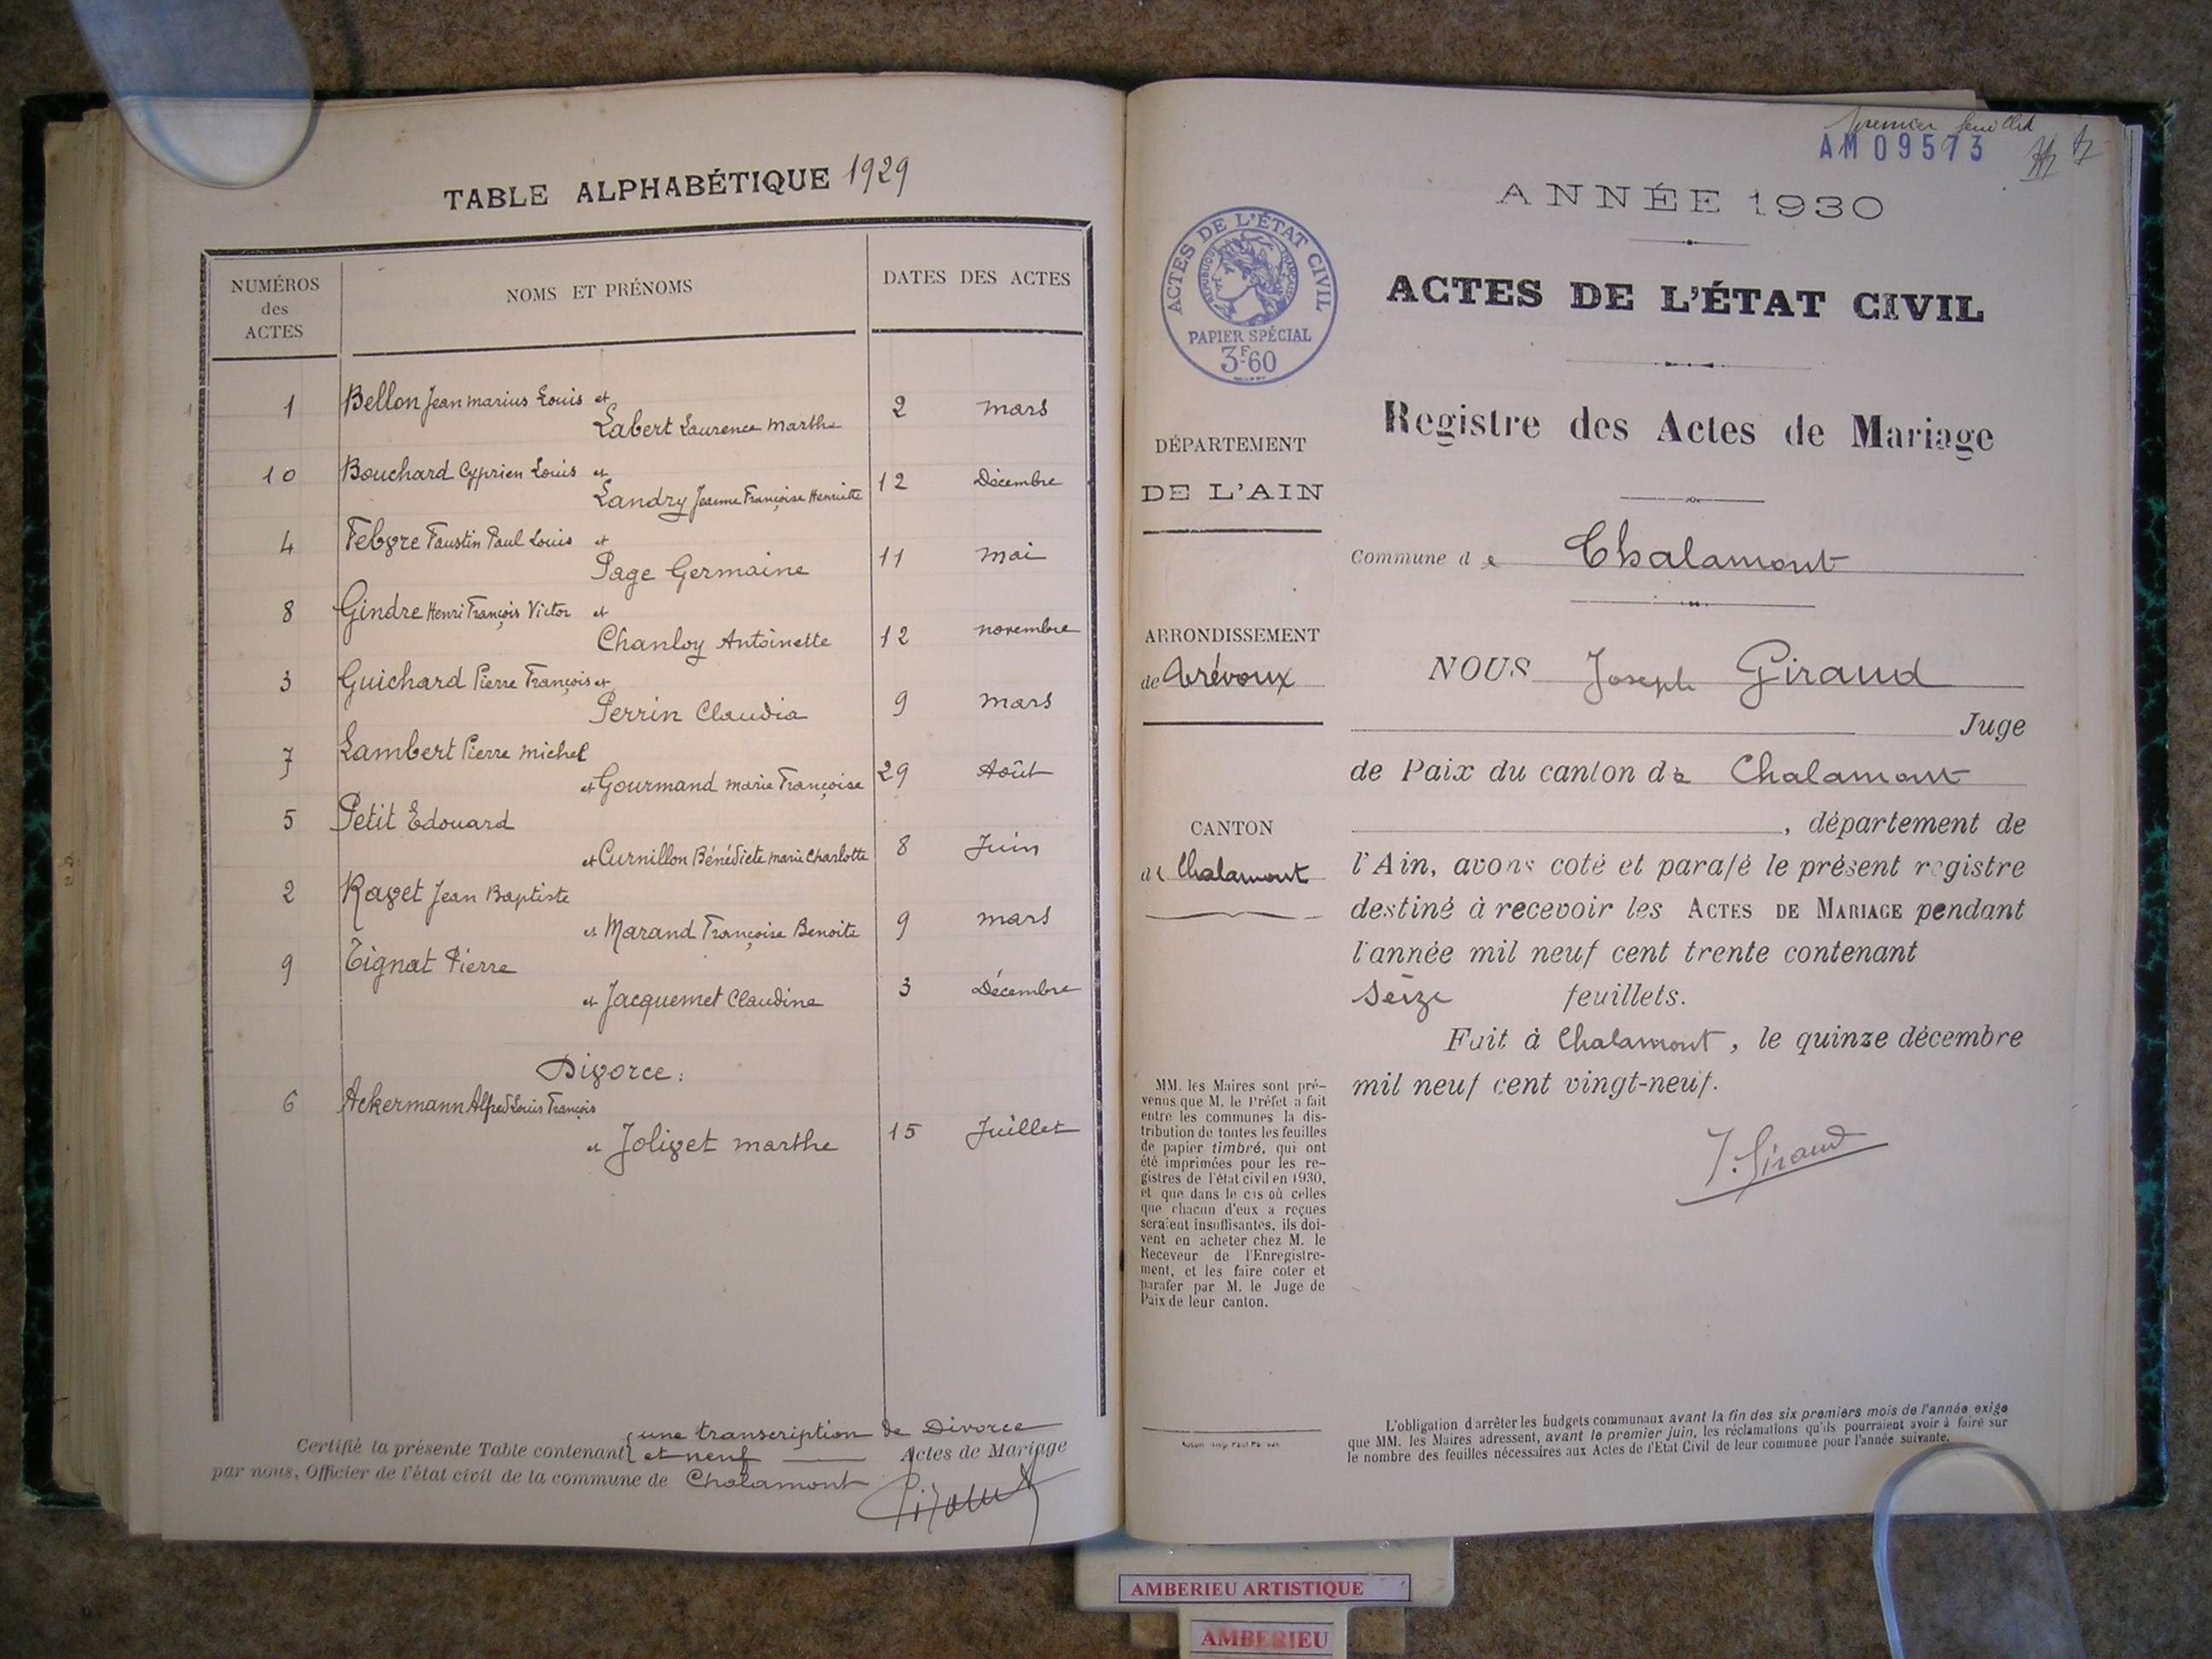 TABLE ALPHABÉTIQUE 1929
NUMÉROS des ACTES
NOMS ET PRÉNOMS
DATES DES ACTES
1 Bellon Jean Marius Louis et
Labert Laurence Marthe 2 Mars
10 Bouchard Cyprien Louis et
Landry Jeanne Françoise Henriette 12 Décembre
4 Febvre Faustin Paul Louis et
Page Germaine 11 Mai
8 Gindre Henri François Victor et
Chanloy Antoinette 12 novembre
3 Guichard Pierre François et
Perrin Claudia 9 Mars
7 Lambert Pierre Michel
et Gourmand Marie Françoise 29 Août
5 Petit Edouard
et Curnillon Bénédicte Marie Charlotte 8 Juin
2 Ravet Jean Baptiste
et Marand Françoise Benoite 9 Mars
9 Tignat Pierre
et Jacquemet Claudine 3 Décembre
Divorce :
6 Ackermann Alfred Louis François
et Jolivet Marthe 15 Juillet
une transcription de Divorce
Certifié la présente Table contenant et neuf Actes de Mariage
par nous, Officier de l'état civil de la commune de Chalamont
premier feuillet
AM 09573
ANNÉE 1930
ACTES DE L'ÉTAT CIVIL
RÉPUBLIQUE FRANÇAISE
PAPIER SPÉCIAL
3F60
ACTES DE L'ÉTAT CIVIL
Registre des Actes de Mariage
DÉPARTEMENT
DE L'AIN
ARRONDISSEMENT
de Trévoux
CANTON
de Chalamont
MM. les Maires sont pré-
venus que M. le Préfet a fait
entre les communes la dis-
tribution de toutes les feuilles
de papier timbré, qui ont
été imprimées pour les re-
gistres de l'état civil en 1930,
et que dans le cas où celles
que chacun d'eux a reçues
seraient insuffisantes, ils doi-
vent en acheter chez M. le
Receveur de l'Enregistre-
ment, et les faire coter et
parafer par M. le Juge de
Paix de leur canton.
Commune de Chalamont
NOUS Joseph Giraud
Juge
de Paix du canton de Chalamont
, département de
l'Ain, avons coté et parafé le présent registre
destiné à recevoir les ACTES DE MARIAGE pendant
l'année mil neuf cent trente contenant
seize feuillets.
Fait à Chalamont, le quinze décembre
mil neuf cent vingt-neuf.
J. Giraud
L'obligation d'arrêter les budgets communaux avant la fin des six premiers mois de l'année exige
que MM. les Maires adressent, avant le premier juin, les réclamations qu'ils pourraient avoir à faire sur
le nombre des feuilles nécessaires aux Actes de l'Etat Civil de leur commune pour l'année suivante.
AMBERIEU ARTISTIQUE
AMBERIEU